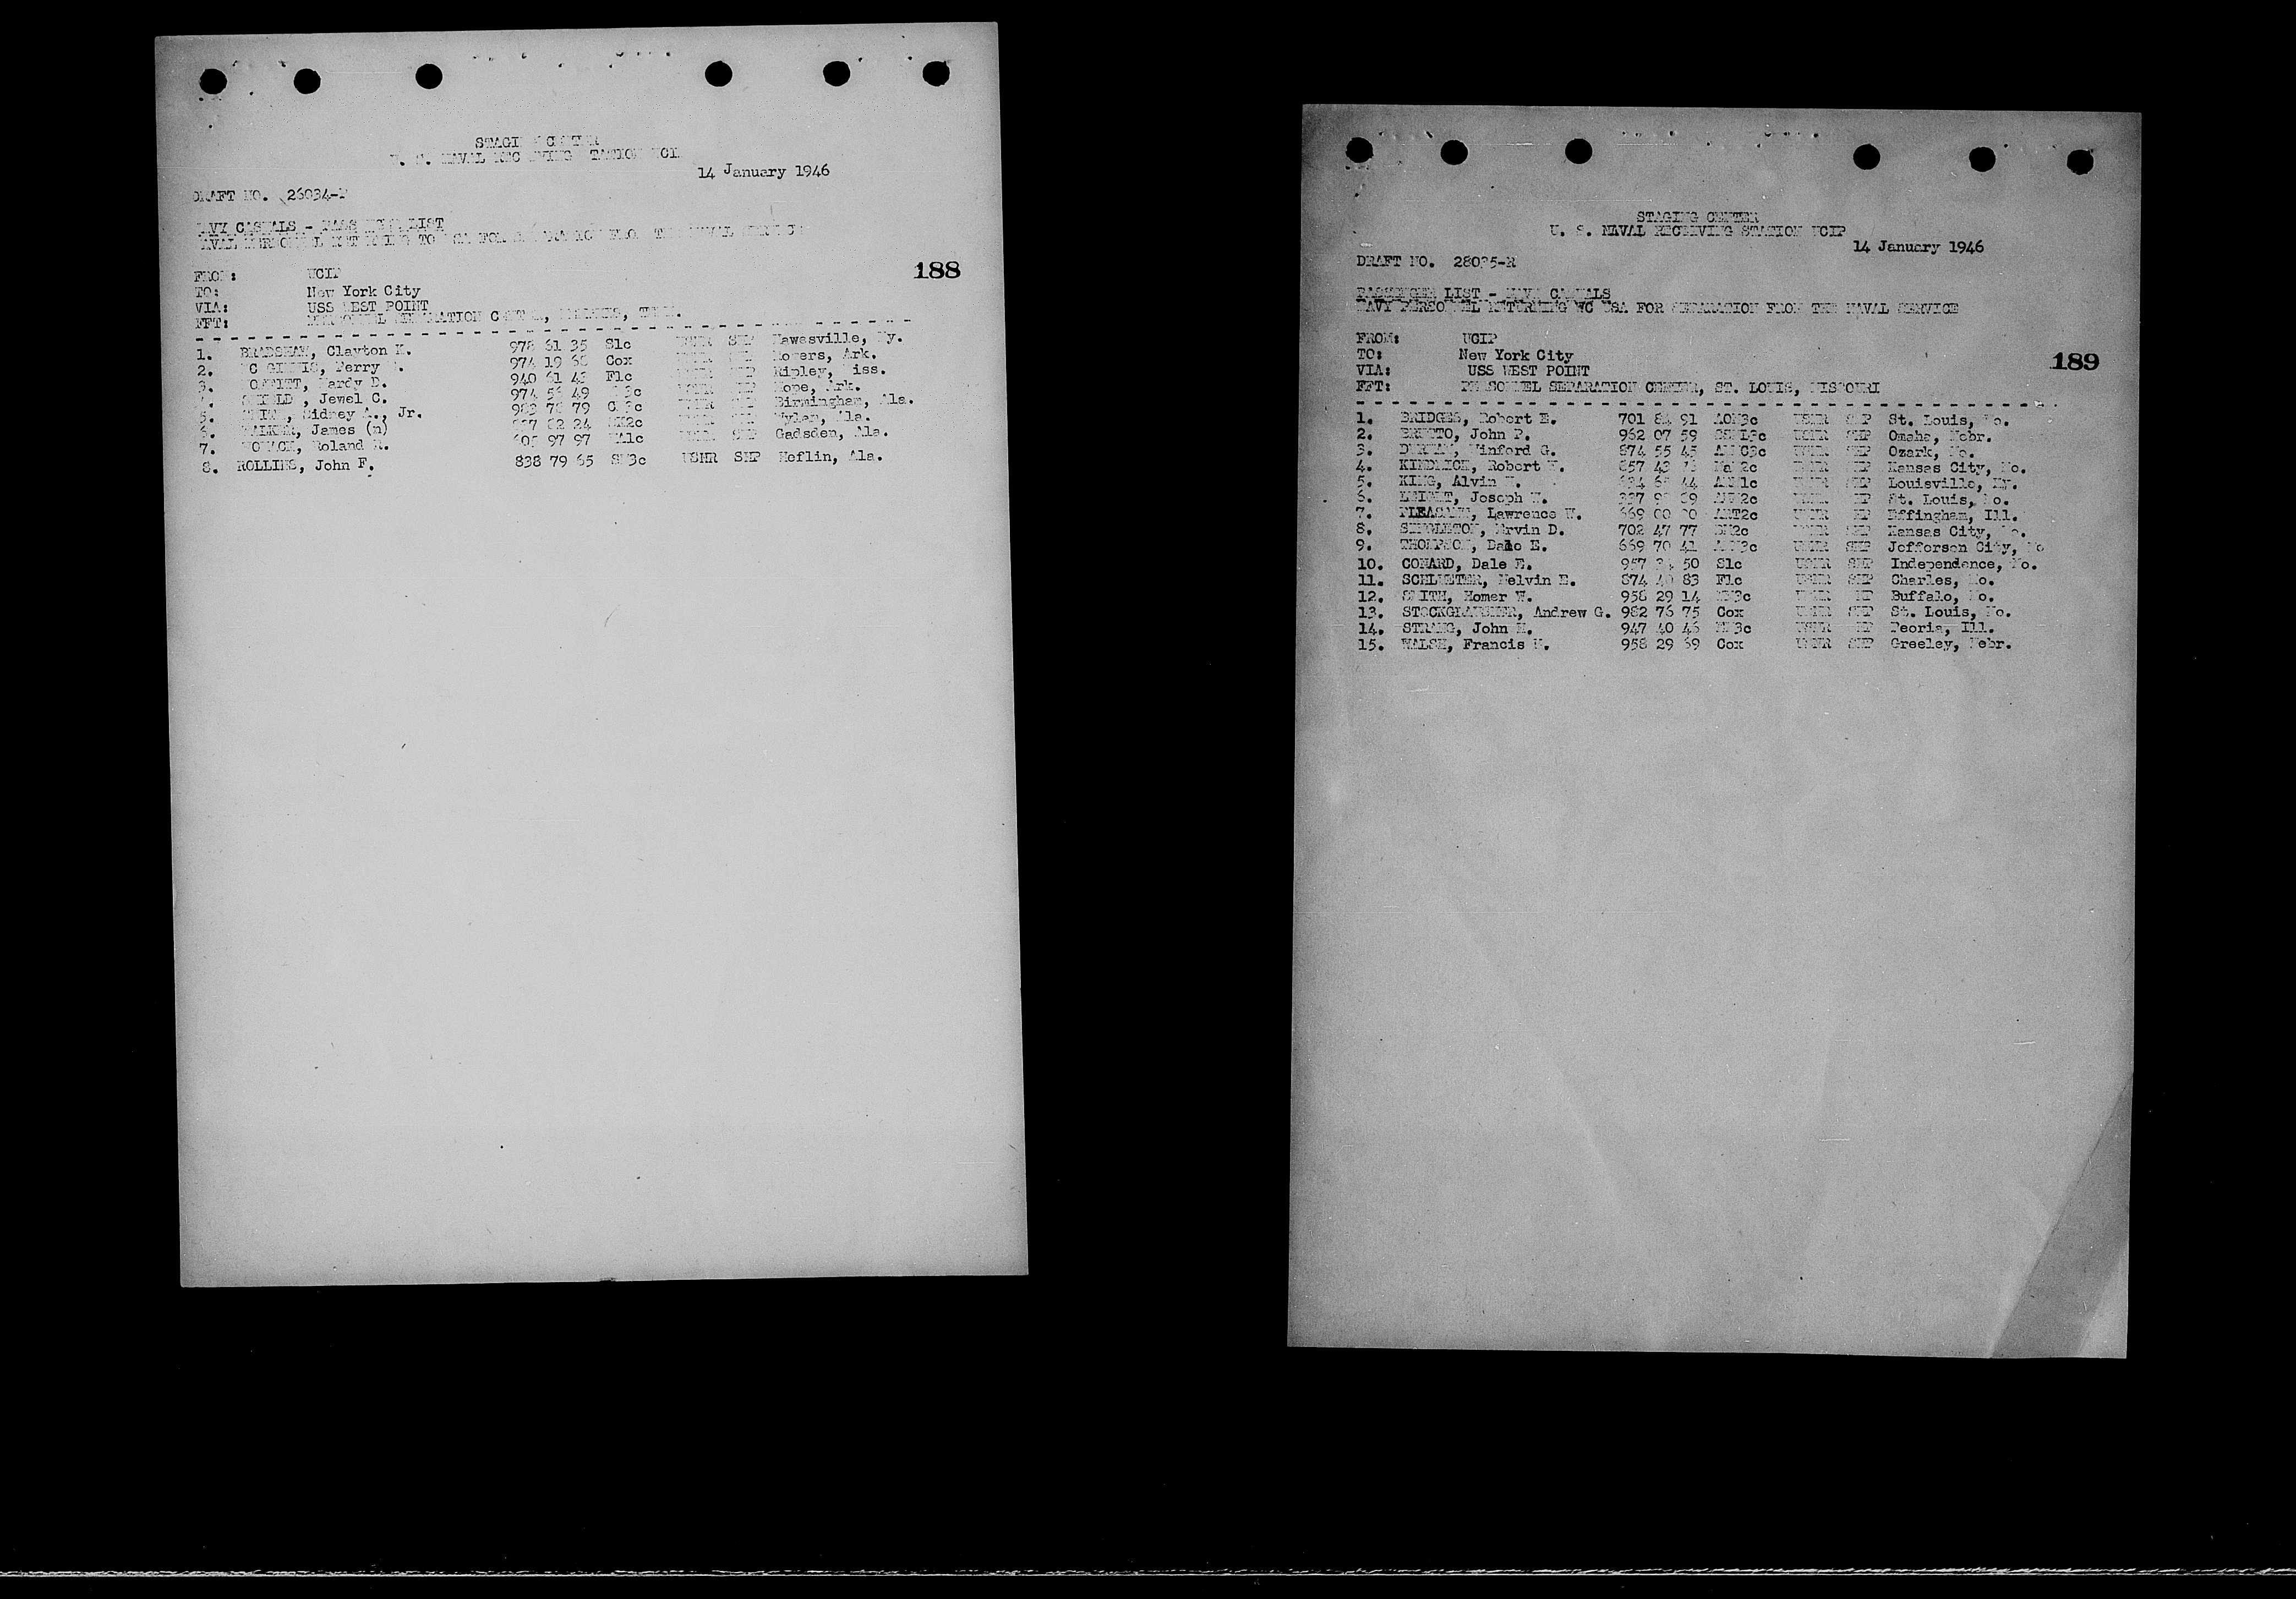 STAGING CENTER
U. S. NAVAL RECEIVING STATION UCIP
14 January 1946
DRAFT NO. 26034-R
NAVY CASUALS - PASSENGER LIST
NAVAL PERSONNEL RETURNING TO USA FOR SEPARATION FROM THE NAVAL SERVICE
188
FROM: UCIP
TO: New York City
VIA: USS WEST POINT
FFT: PERSONNEL SEPARATION CENTER, MEMPHIS, TENN.
1. BRADSHAW, Clayton K. 978 61 35 S1c USNR SMP Hawesville, Ky.
2. Perry 974 19 68 Cox USNR SMP Rogers, Ark.
3. Hardy D. 940 61 43 F1c USNR SMP Ripley, Miss.
4. Jewel C. 974 56 49 USNR SMP Hope, Ark.
5. SMITH, Sidney A., Jr. 983 78 79 USNR SMP Birmingham, Ala.
6. WALKER, James (n) 82 24 USNR SMP Wylam, Ala.
7. Roland R. 605 97 97 USNR SMP Gadsden, Ala.
8. ROLLINS, John F. 838 79 65 SM3c USNR SMP Heflin, Ala.
STAGING CENTER
U. S. NAVAL RECEIVING STATION UCIP
14 January 1946
DRAFT NO. 28035-R
PASSENGER LIST - NAVY CASUALS
NAVY PERSONNEL RETURNING TO USA FOR SEPARATION FROM THE NAVAL SERVICE
189
FROM: UCIP
TO: New York City
VIA: USS WEST POINT
FFT: PERSONNEL SEPARATION CENTER, ST. LOUIS, MISSOURI
1. BRIDGES, Robert E. 701 84 91 AOM3c USNR SMP St. Louis, Mo.
2. John P. 962 07 59 USNR SMP Omaha, Nebr.
3. Winford G. 874 55 45 USNR SMP Ozark, Mo.
4. Robert 857 43 USNR SMP Kansas City, Mo.
5. KING, Alvin 44 USNR SMP Louisville, Ky.
6. Joseph W. USNR SMP St. Louis, Mo.
7. Lawrence W. 669 ART2c USNR SMP Effingham, Ill.
8. SINGLETON, Ervin D. 702 47 77 USNR SMP Kansas City, Mo.
9. THOMPSON, Dale E. 669 70 41 USNR SMP Jefferson City, Mo
10. CONARD, Dale E. 957 50 S1c USNR SMP Independence, Mo.
11. SCHLUETER, Melvin E. 874 40 83 F1c USNR SMP Charles, Mo.
12. SMITH, Homer W. 958 29 14 USNR SMP Buffalo, Mo.
13. Andrew G. 982 76 75 Cox USNR SMP St. Louis, Mo.
14. STRANG, John 947 40 46 USNR SMP Peoria, Ill.
15. WALSH, Francis 958 29 69 Cox USNR SMP Greeley, Nebr.